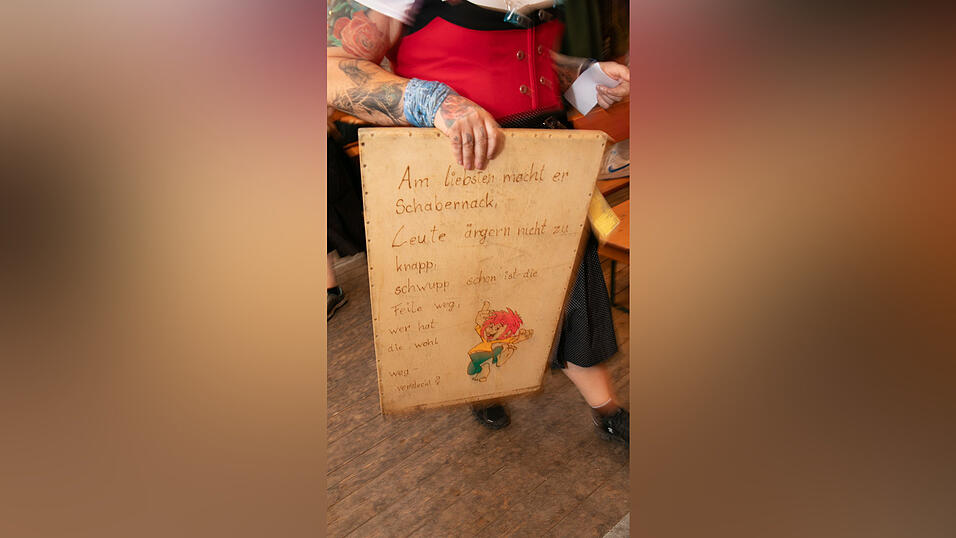 Am liebsten macht er
Schabernack,
Leute ärgern nicht zu
knapp,
schwupp schon ist die
Feile weg,
wer hat
die wohl
weg-
versteckt?